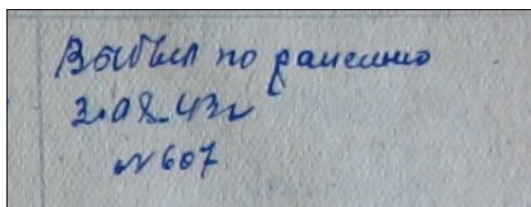 Выбыл по ранению
3.08.43г
№607